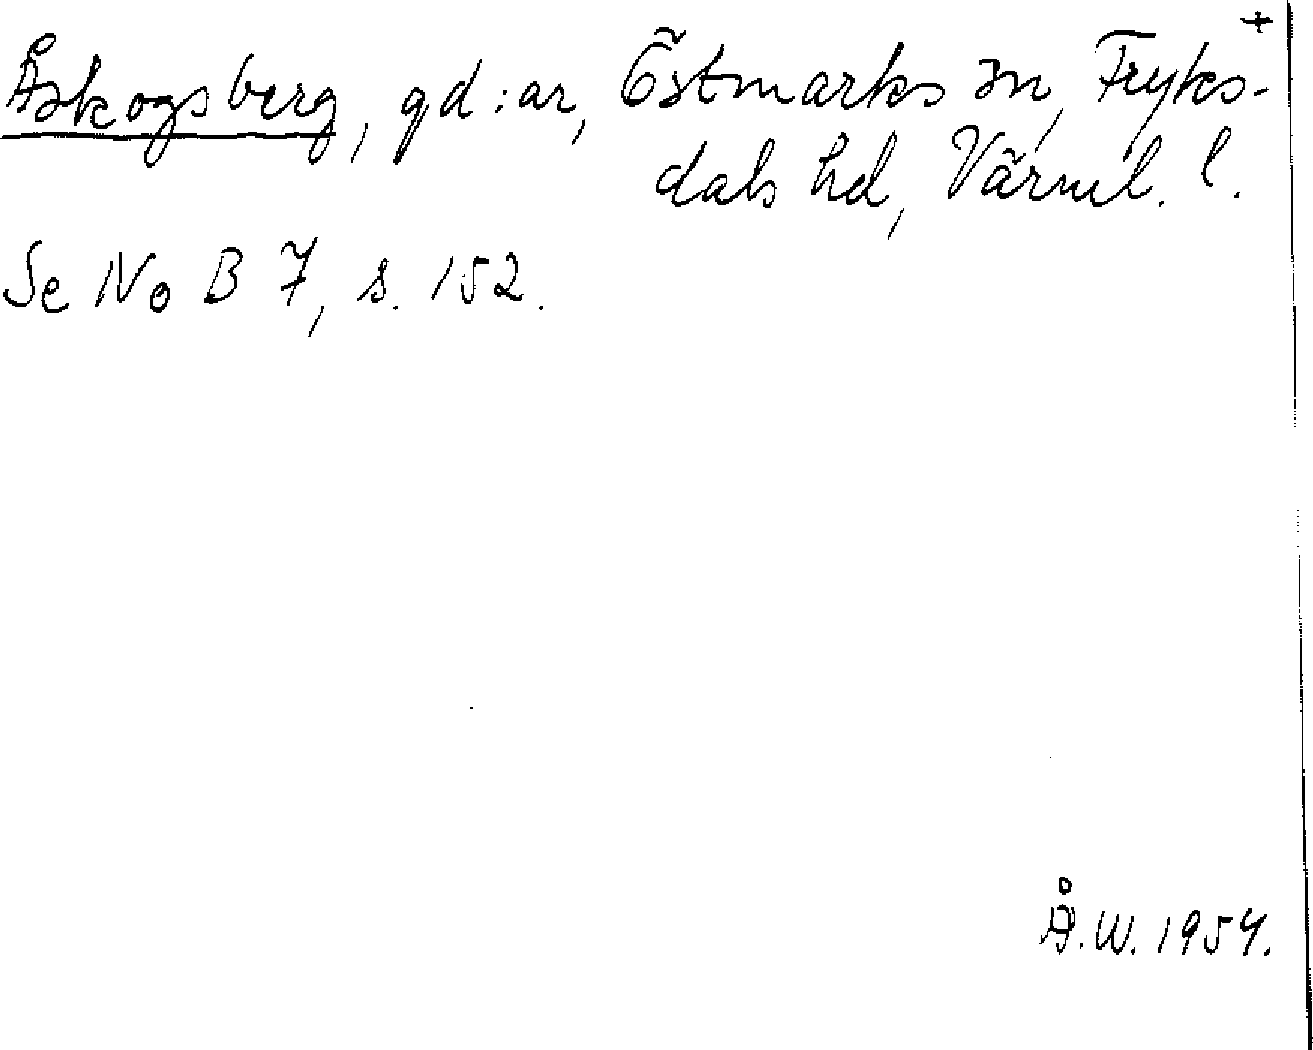 +
Åskogsberg, gd:ar, Östmarks sn, Fryks-
dals hd, Värml. l.
Se NoB 7, s. 152.
Å.W. 1954.